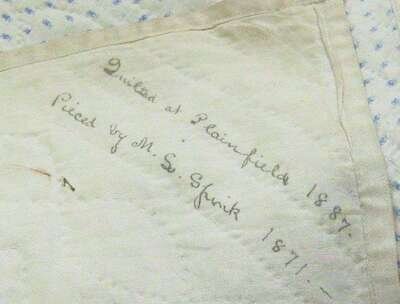 Quilted at Plainfield 1887.
Pieced by M. S. Spink 1871.—